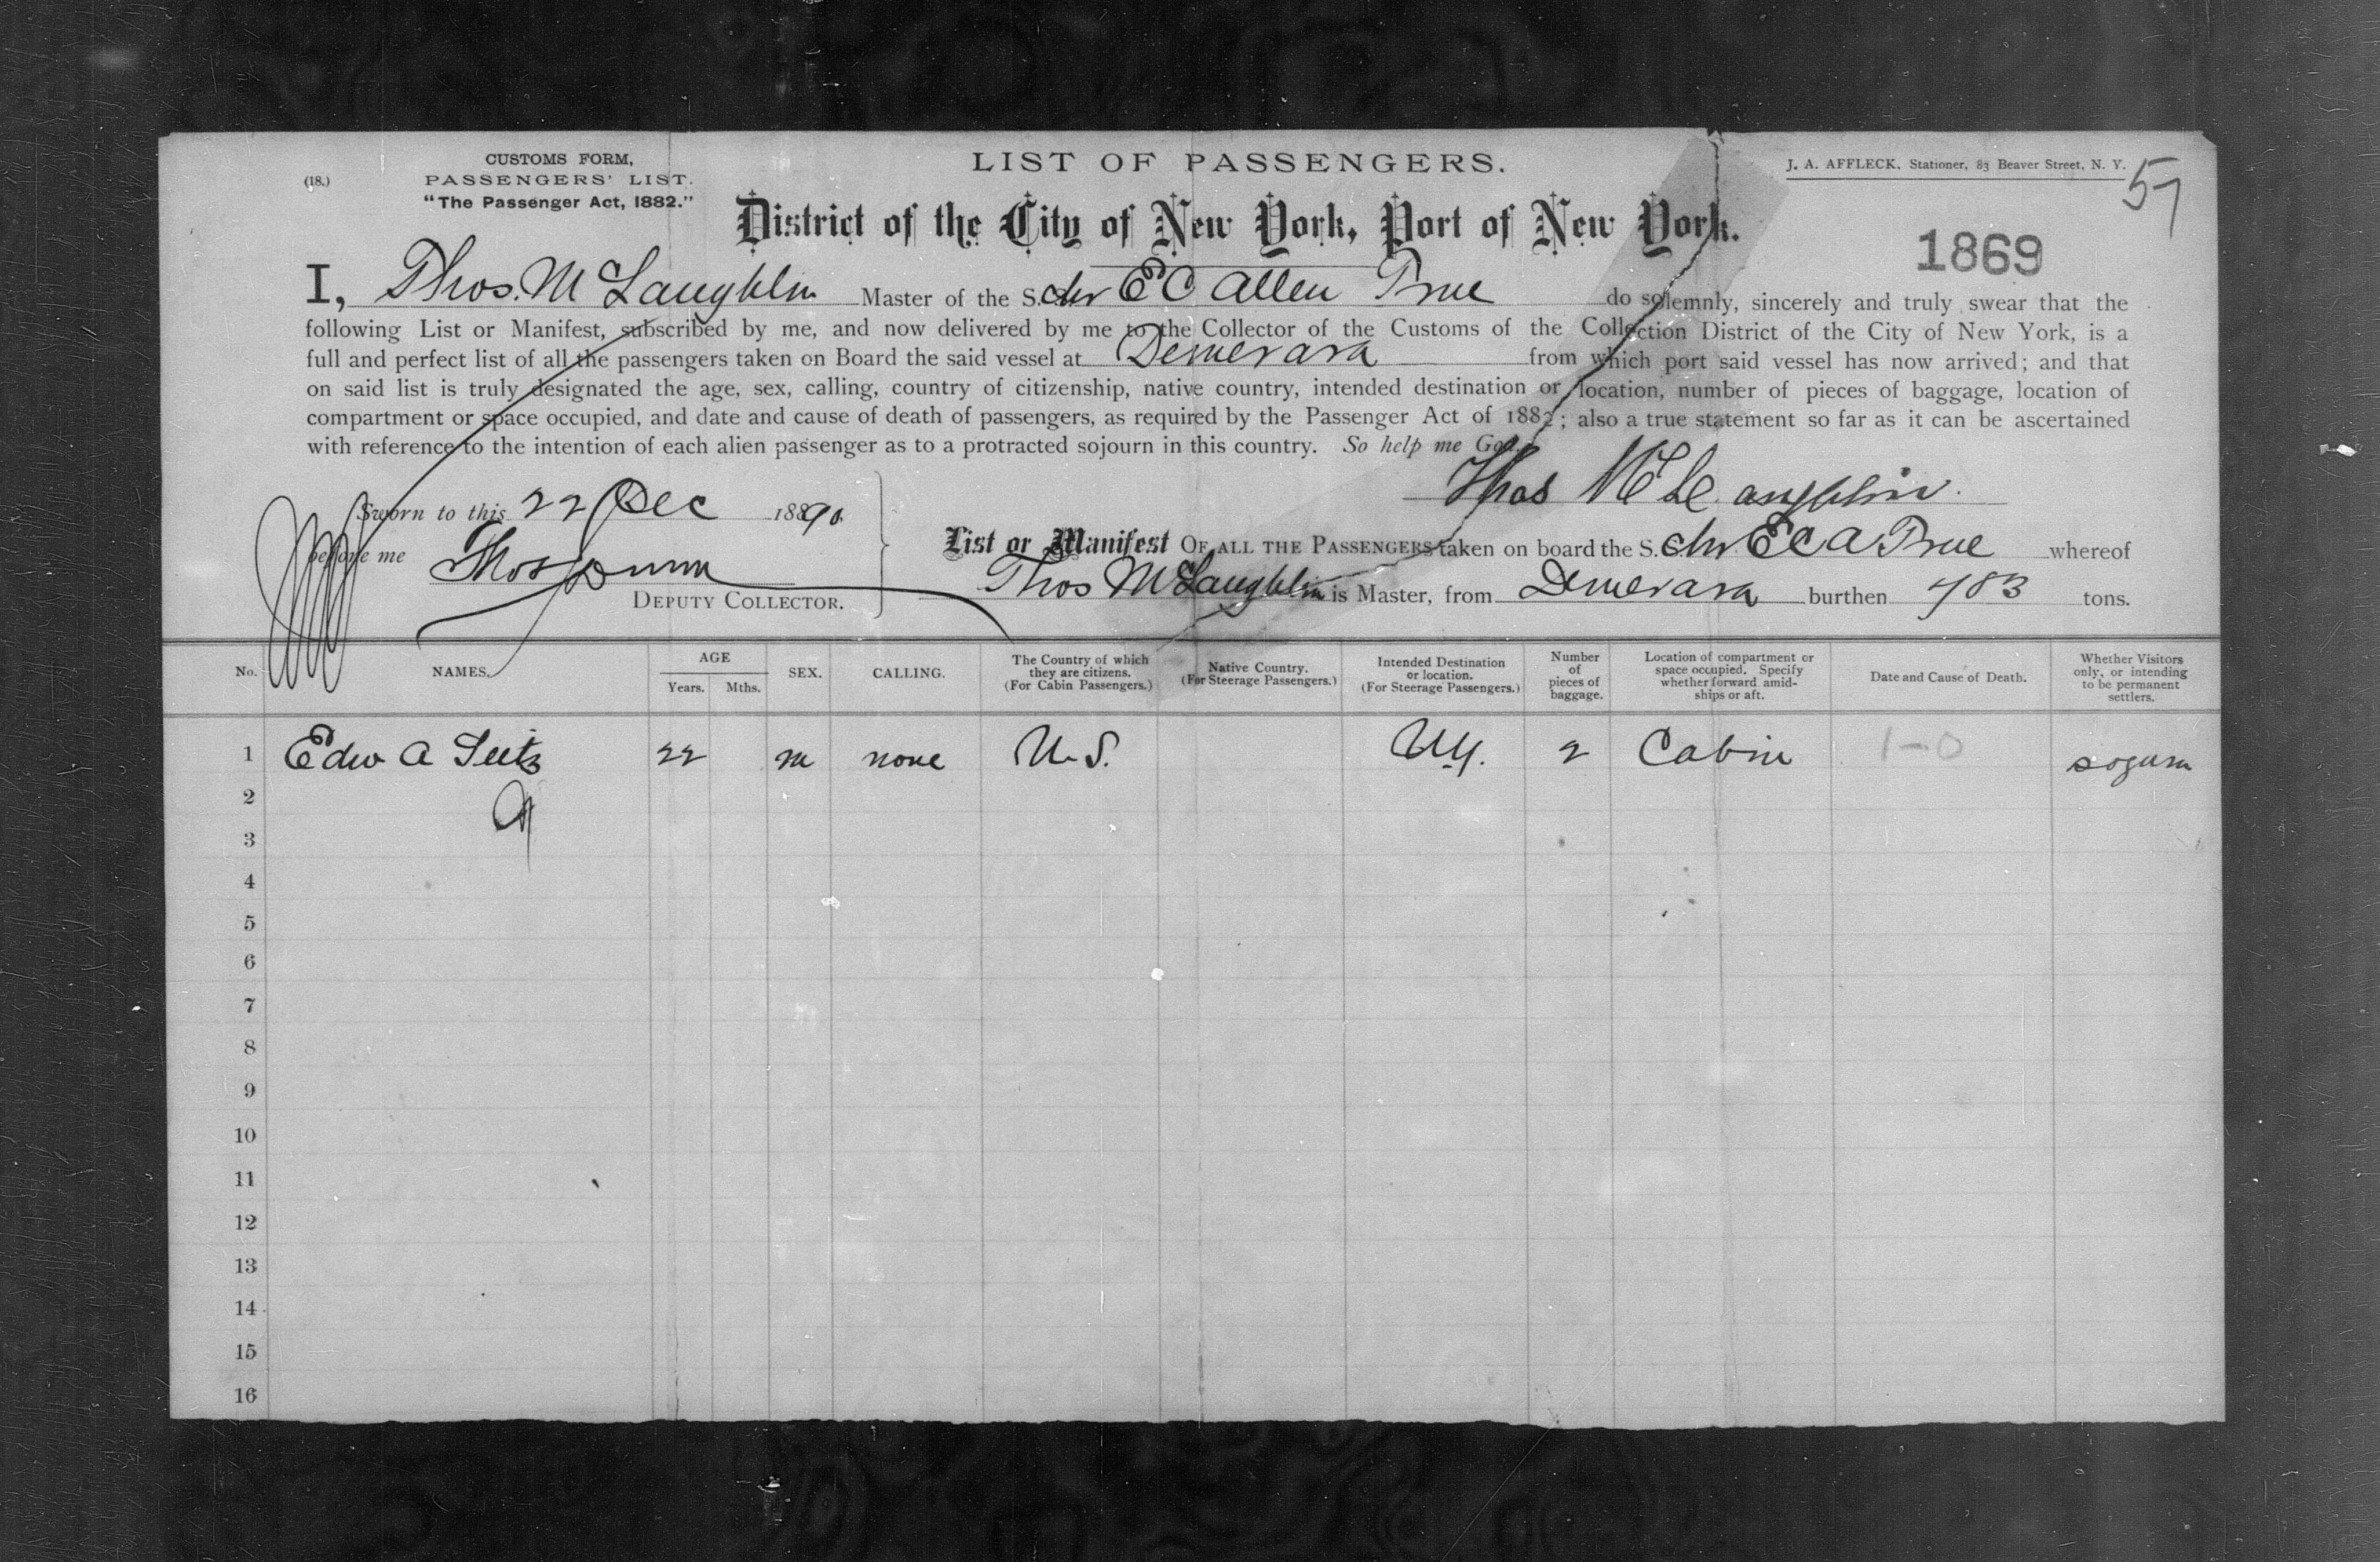 CUSTOMS FORM,
PASSENGERS' LIST.
"The Passenger Act, 1882."
(18.)
LIST OF PASSENGERS.
J. A. AFFLECK, Stationer, 83 Beaver Street, N. Y.
57
District of the City of New York, Port of New York.
1869
I, Thos. McLaughlin Master of the S. chr E C Allen True do solemnly, sincerely and truly swear that the
following List or Manifest, subscribed by me, and now delivered by me to the Collector of the Customs of the Collection District of the City of New York, is a
full and perfect list of all the passengers taken on Board the said vessel at Demerara from which port said vessel has now arrived; and that
on said list is truly designated the age, sex, calling, country of citizenship, native country, intended destination or location, number of pieces of baggage, location of
compartment or space occupied, and date and cause of death of passengers, as required by the Passenger Act of 1882; also a true statement so far as it can be ascertained
with reference to the intention of each alien passenger as to a protracted sojourn in this country. So help me God.
Thos McLaughlin.
Sworn to this 22 Dec 1890
before me Thos Dunn
DEPUTY COLLECTOR.
List or Manifest OF ALL THE PASSENGERS taken on board the S. chr. E C A True whereof
Thos McLaughlin is Master, from Demerara burthen 483 tons.
No. NAMES. AGE Years. Mths. SEX. CALLING. The Country of which they are citizens. (For Cabin Passengers.) Native Country. (For Steerage Passengers.) Intended Destination or location. (For Steerage Passengers.) Number of pieces of baggage. Location of compartment or space occupied. Specify whether forward amid-ships or aft. Date and Cause of Death. Whether Visitors only, or intending to be permanent settlers.
1 Edw A Seitz 22 m none U.S. N.Y. 2 Cabin 1-0
2
3
4
5
6
7
8
9
10
11
12
13
14
15
16